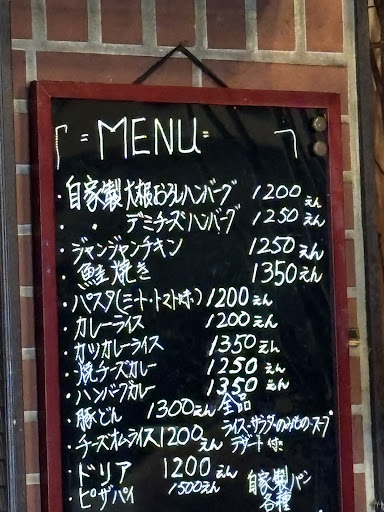 =MENU=
・自家製 大根おろしハンバーグ 1200えん
・ 〃 デミチーズハンバーグ 1250えん
・ジャンジャンチキン 1250えん
・鮭焼き 1350えん
・パスタ(ミート・トマト) 1200えん
・カレーライス 1200えん
・カツカレーライス 1350えん
・焼チーズカレー 1250えん
・ハンバーグカレー 1350えん
・豚どん 1300えん
・チーズオムライス 1200えん
・ドリア 1200えん
・ピザパイ 1500えん
全品
ライス・サラダ・のみもの・スープ
デザート 付
自家製パン
各種